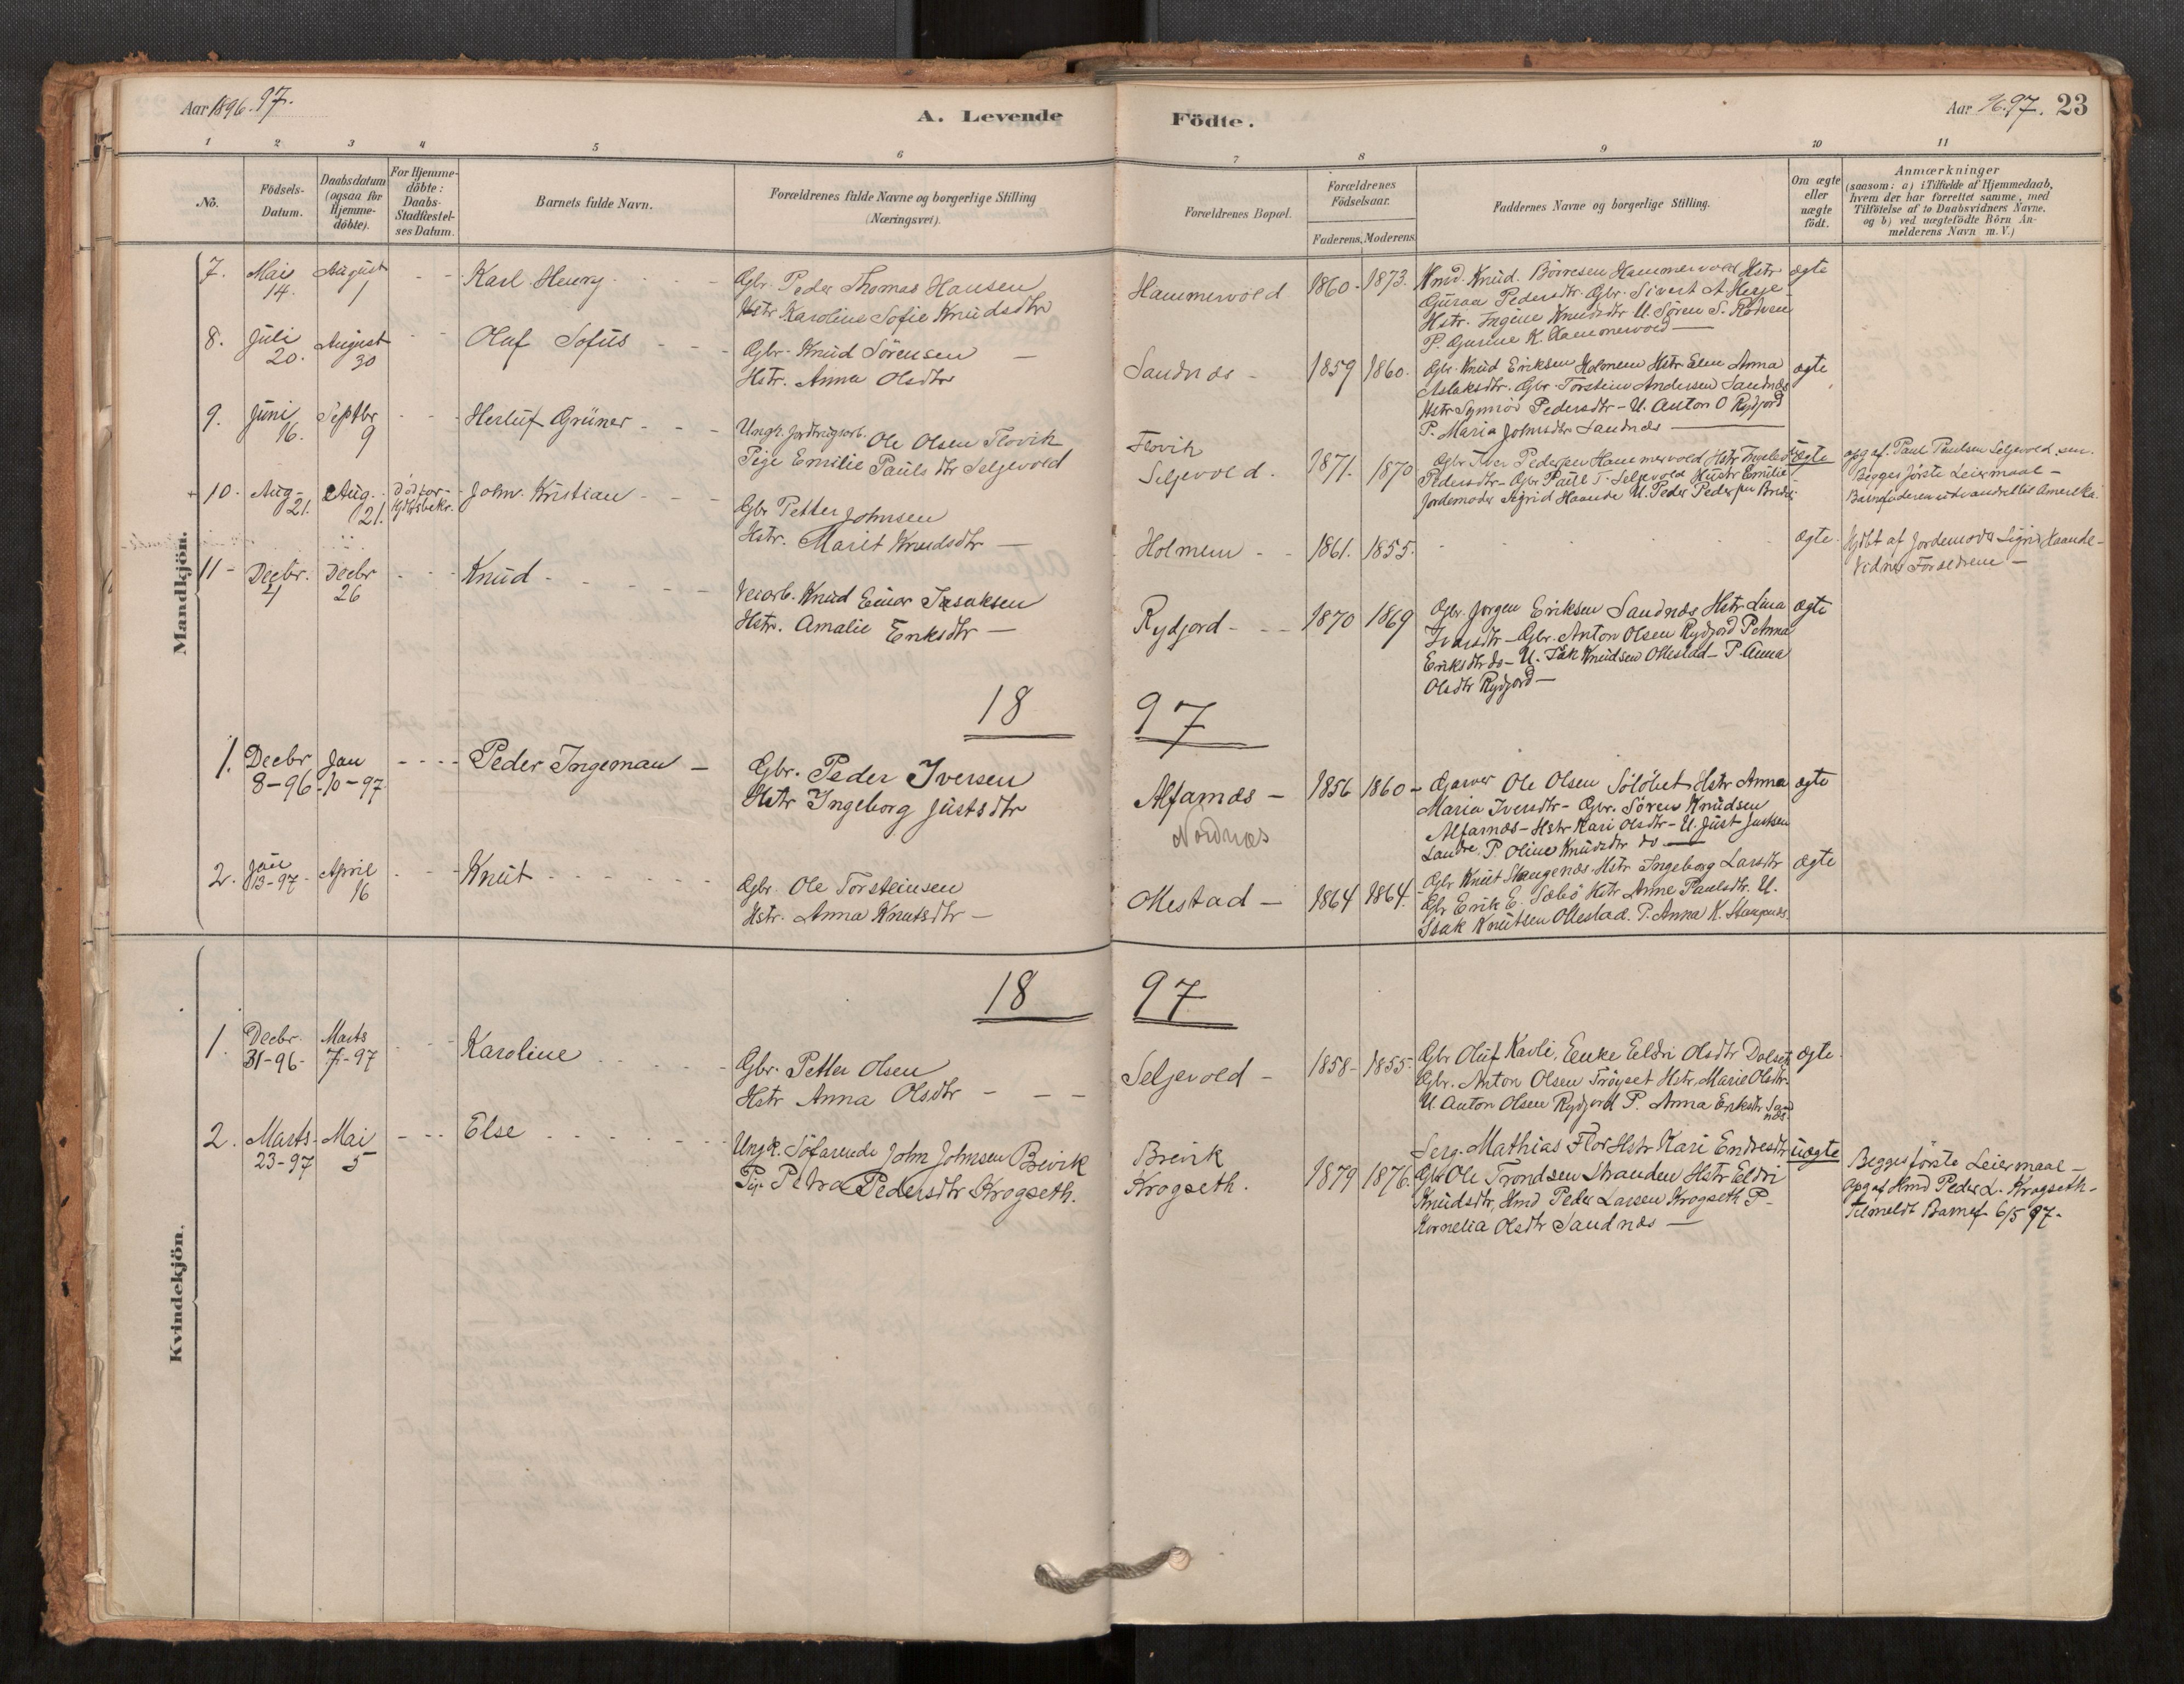 Aar 1896.97.
A. Levende
Födte.
Aar 96.97. 23
1 2 3 4 5 6 7 8 9 10 11
No.
Födsels-
Datum.
Daabsdatum
(ogsaa for
Hjemme-
döbte).
For Hjemme-
döbte:
Daabs-
Stadfæstel-
ses Datum.
Barnets fulde Navn.
Forældrenes fulde Navne og borgerlige Stilling
(Næringsvei).
Forældrenes Bopæl.
Forældrenes
Födselsaar.
Faderens. Moderens.
Faddernes Navne og borgerlige Stilling.
Om ægte
eller
uægte
födt.
Anmærkninger
(saasom: a) i Tilfælde af Hjemmedaab,
hvem der har forrettet samme, med
Tilföielse af to Daabsvidners Navne,
og b) ved uægtefödte Börn An-
melderens Navn m. V.)
Mandkjön.
7. Mai
14.
August
1
Karl Henry
Gbr. Peder Thomas Hansen
Hstr Karoline Sofie Knudsdtr
Hammervold
1860 - 1873.
Hmd. Knud Börresen Hammervold Hstr
Guraa Pedersdtr. Gbr. Sivert A. Herje
Hstr. Ingine Knudsdtr U. Sören S. Rödven
P. Gurine K. Hammervold
ægte
8. Juli
20.
August
30
Oluf Sofus
Gbr. Knud Sörensen
Hstr. Anna Olsdtr
Sandnæs
1859 1860.
Gbr. Knud Eriksen Holmem Hstr Elen Anna
Aslaksdtr. Gbr. Torstein Andersen Sandnæs
Hstr Synnöv Pedersdtr - U. Anton O Rydjord
P. Maria Johnsdtr Sandnæs
ægte
9. Juni
16.
Septbr
9
Herluf Grüner
Ungk. Jordbrugsarb. Ole Olsen Flovik
Pige Emilie Pauls dtr Seljevold
Flovik
Seljevold.
1871. 1870
Gbr Iver Pedersen Hammervold, Hstr Ingeborg
Pedersdtr - Gbr Paul P. Seljevold Hustr Emilie
Jordemoder Sigrid Haande U. Peder Pedersen
uægte
opg af. Paul Paulsen Seljevold sen.
Begges förste Leiermaal -
Barnefaderen udvandret til Amerika.
+ 10. Aug.
21.
Aug.
21.
Död for-
John Kristian
Gbr Petter Johnsen
Hstr. Marit Knudsdtr
Holmem
1861. 1855.
ægte.
Hjdbt af Jordemoder Sigrid Haande -
Vidner Forældrene -
11 - Decbr.
4
Decbr
26
Knud
Veiarb. Knud Einar Isaksen
Hstr. Amalie Eriksdtr
Rydjord
1870 1869
Gbr. Jorgen Eriksen Sandnæs Hstr Lina
Ivarsdtr - Gbr. Anton Olsen Rydjord P. Anna
Eriksdtr do - U. Isak Knudsen Ollestad - P. Anna
Olsdtr Rydjord -
ægte
18 97
1. Decbr
8 - 96
Jan
10 - 97
Peder Ingeman
Gbr. Peder Iversen
Hstr Ingeborg Justsdtr
Alfarnæs
Nordnæs
1856 1860
Garver Ole Olsen Hstr Anna
Maria Iversdtr - Gbr. Sören Knudsen
Alfarnæs - Hstr Kari Olsdtr - U. Just Justsen
P. Oline Knudsdtr do
ægte
2. Jan
13 - 97
April
16
Knut
Gbr. Ole Torsteinsen
Hstr. Anna Knutsdtr
Ollestad
1864 1864.
Gbr Knut Stangenæs Hstr Ingeborg Larsdtr
Gbr Erik E. Sæbö Hstr Anne Paulsdtr. U.
Isak Knutsen Ollestad. P. Anna K. Stangnæs.
ægte
18 97
Kvindekjön.
1. Decbr.
31 - 96
Marts
7 - 97
Karoline
Gbr. Petter Olsen
Hstr Anna Olsdtr
Seljevold
1858 - 1855.
Gbr Oluf Kavli, Enke Eldri Olsdtr Dalset,
Gbr. Anton Olsen Tröyset Hstr, Marie Olsdtr
U. Anton Olsen Rydjord P. Anna Eriksdtr Sand
næs.
ægte.
2. Marts
23 - 97
Mai
5
Else
Ungk. Söfarende John Johnsen Brevik
Pige Petra Pedersdtr Krogseth.
Brevik
Krogseth.
1879 1876.
Serg. Mathias Flor Hstr Kari Endresdtr
Gbr Ole Trondsen Stranden Hstr Eldri
Knudsdtr, Hmd Peder Larsen Krogseth P.
Kornelia Olsdtr Sandnæs
uægte
Begges förste Leiermaal -
opg af Hmd Peder L. Krogseth -
Tilmeldt Barnef 6/5 97.